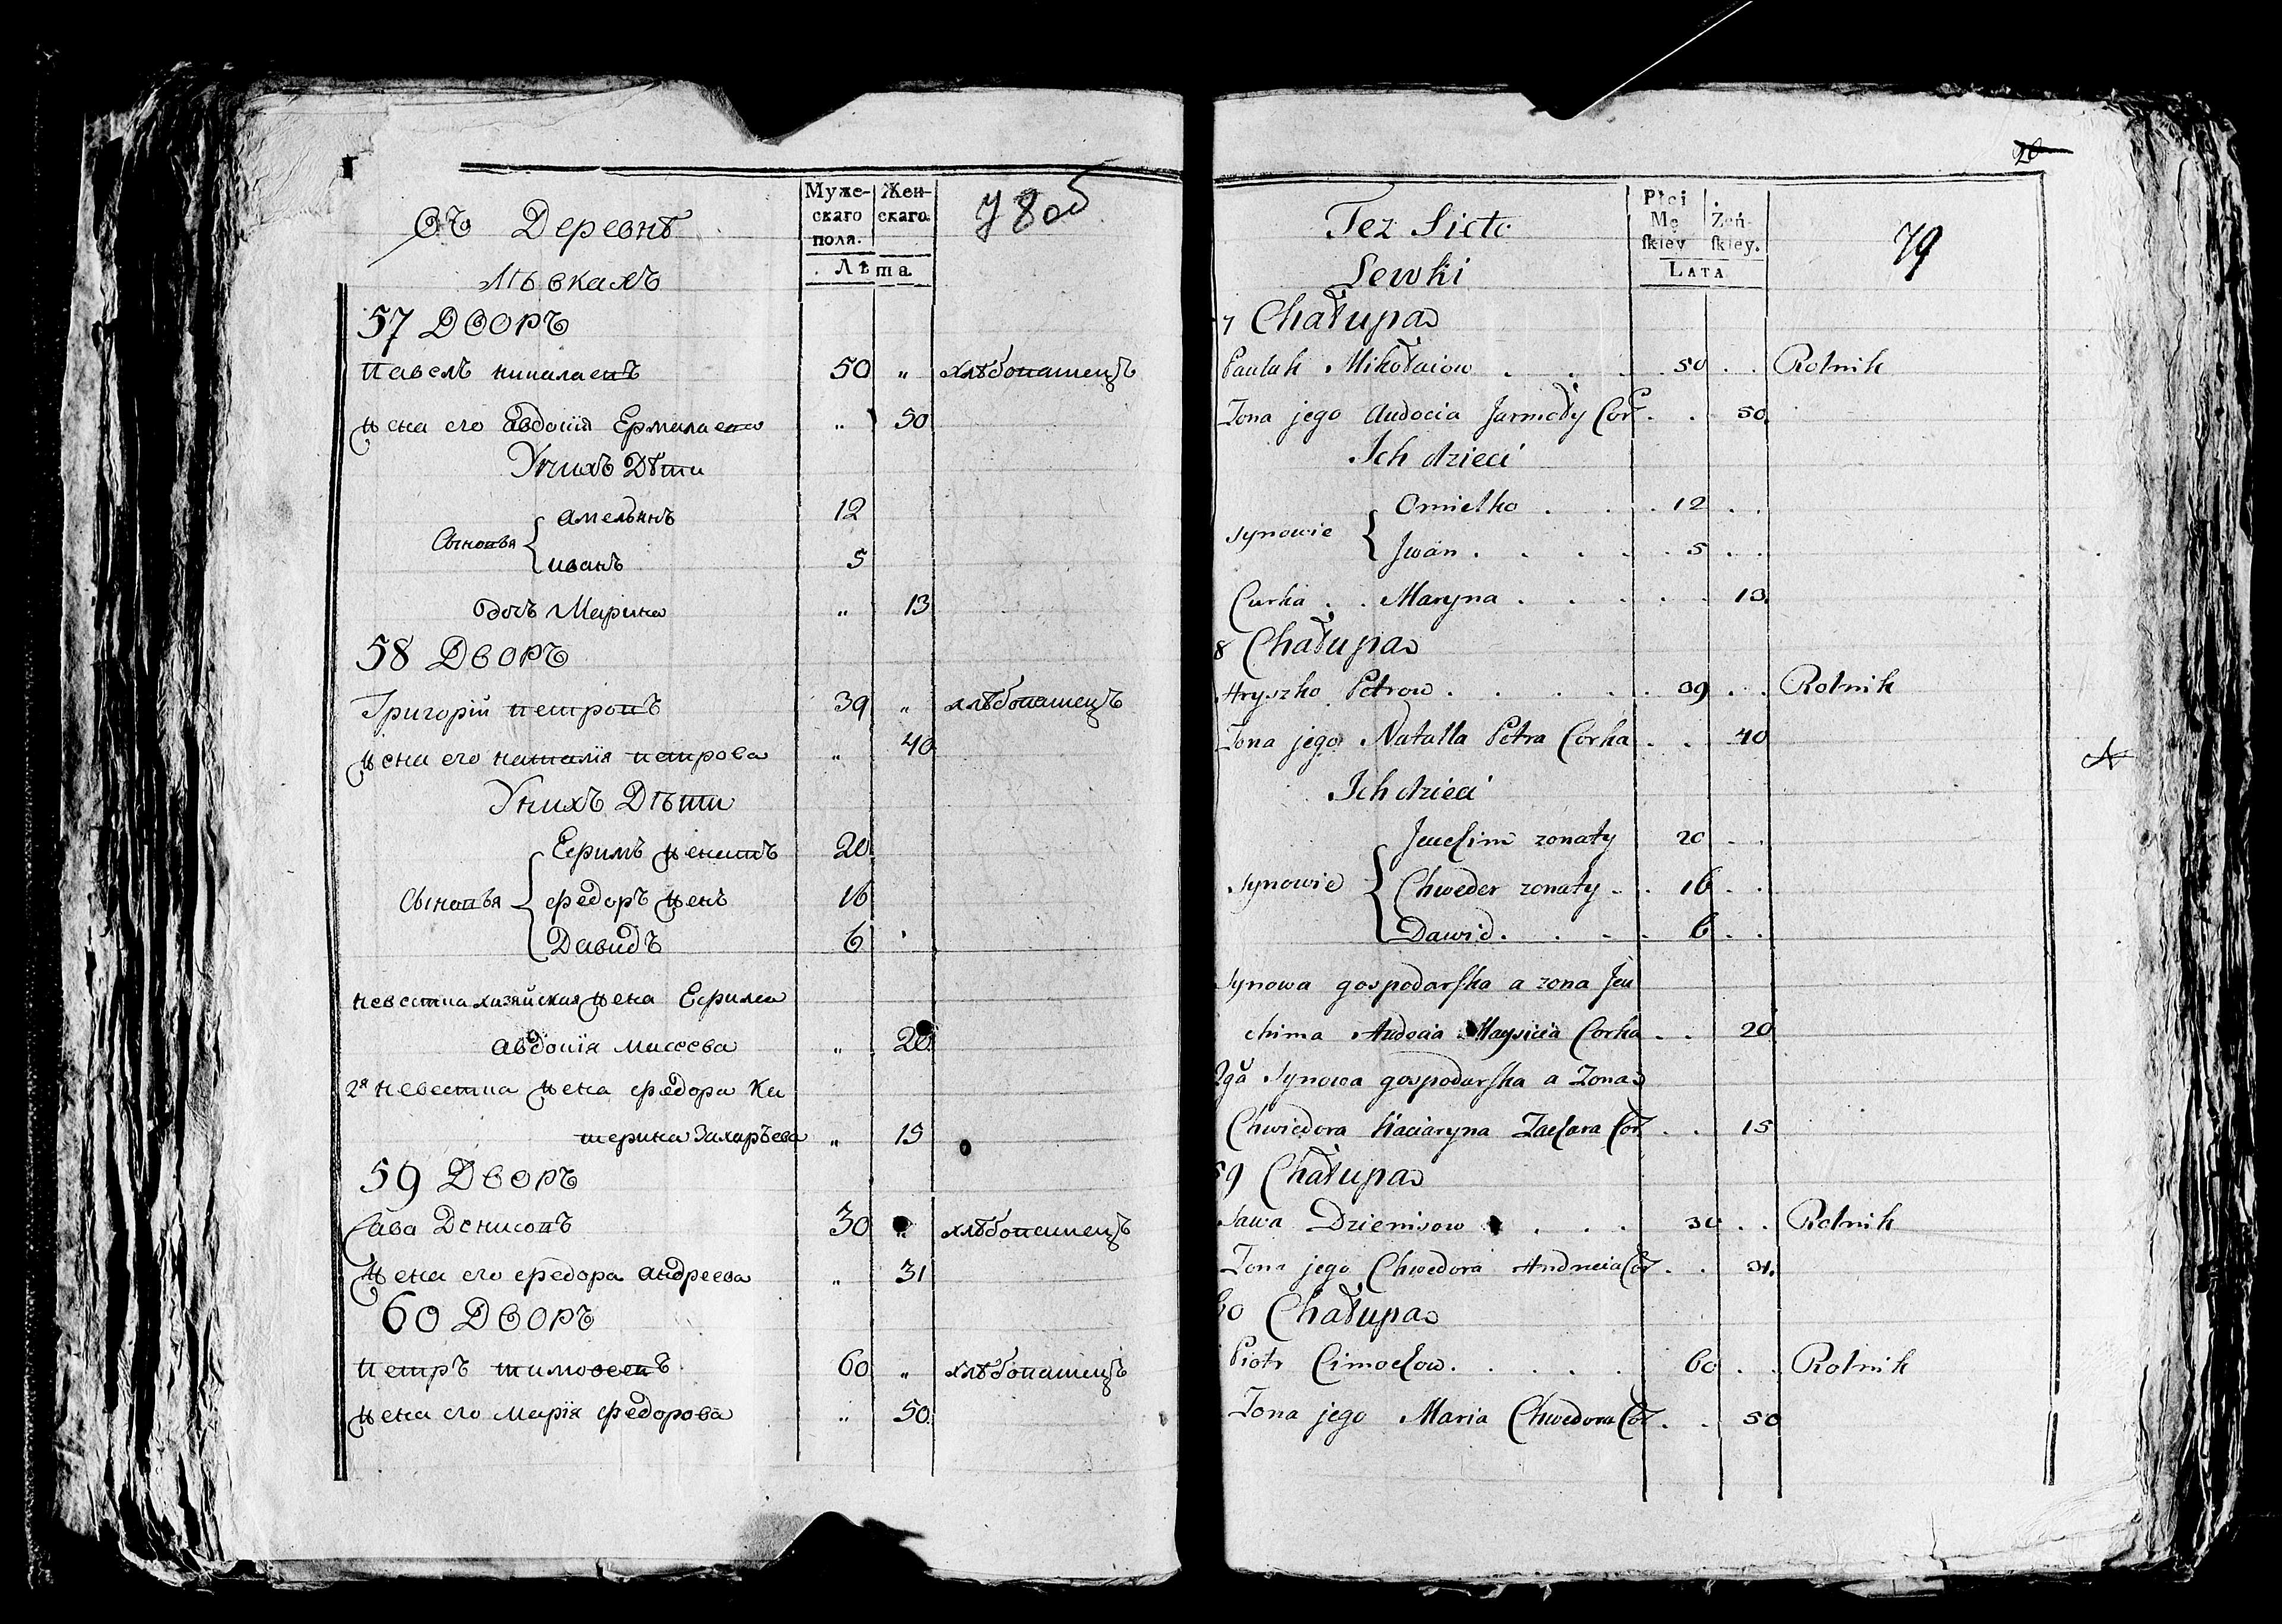 Муже-
скаго
поля.
Жен-
скаго.
Лѣта
78об
Въ Деревнѣ
Лѣвкахъ
57 Дворъ
Павелъ николаевъ 50 " хлѣбопашецъ
жена его Авдотия Ермолаева " 50
У нихъ Дѣти
Сыновья { амельянъ 12
иванъ 5
дочь Марина " 13
58 Дворъ
Григорій петровъ 39 " хлѣбопашецъ
жена его наталія петрова " 40
У нихъ Дѣти
Ефимъ женатъ 20
Сыновья { федоръ жен: 16
Давидъ 6
невестка хазяйская жена Ефима
авдотія Мисеева " 20
2я невестка жена федора Ка
терина Захарьева " 15
59 Дворъ
Сава Денисовъ 30 " хлѣбопашецъ
жена его федора андреева " 31
60 Дворъ
петръ тимофеевъ 60 " хлѣбопашецъ
жена его марія федорова " 50
20
Płci
Mę
ſkiey
Żeń-
ſkiey.
LATA
79
Tez Sioło
Lewki
7 Chałupa
Pauluk Mikołaiow . . . 50 . . Rolnik
Zona jego Audocia Jarmoły Cor . . 50.
Ich dzieci
Synowie { Omielko . . . 12 . .
Jwan . . . . 5 . .
Curka . . Maryna . . . . . 13.
8 Chałupa
Hryszko Petrow . . . . . 39 . . Rolnik
Zona jego Natalla Petra Corka . . 40
Ich dzieci
Jeuchim zonaty 20 . .
Synowie { Chweder zonaty . . 16 . .
Dawid . . . . 6 . .
Synowa gospodarſka a zona Jeu
chima Audocia Maysieia Corka . . 20
2ga Synowa gospodarſka a Zona
Chwiedora Kaciaryna Zachara Cor . . 15
59 Chałupa
Sawa Dzienisow . . . 30 . . Rolnik
Zona jego Chwedora Andrieia Cor . . 31.
60 Chałupa
Piotr Cimochow . . . . . 60 . . Rolnik
Zona jego Maria Chwedora Cor . . 50